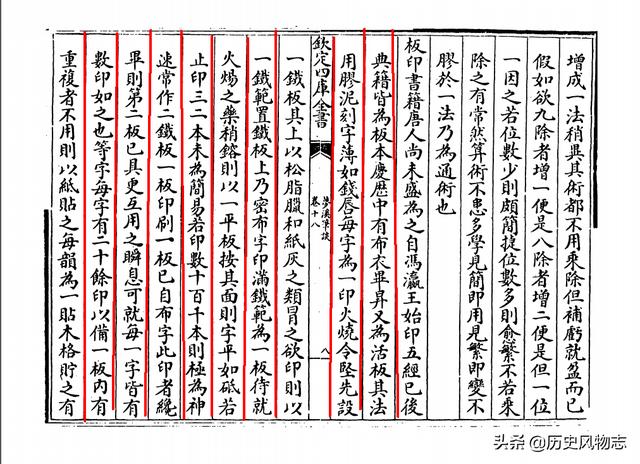 增成一法稍異其術都不用乘除但補虧就盈而已
假如欲九除者增一便是八除者增二便是但一位
一因之若位數少則頗簡捷位數多則愈繁不若乘
除之有常然算術不患多學見簡即用見繁即變不
膠於一法乃為通術也
板印書籍唐人尚未盛為之自馮瀛王始印五經已後
典籍皆為板本慶歷中有布衣畢昇又為活板其法
用膠泥刻字薄如錢唇每字為一印火燒令堅先設
欽定四庫全書
夢溪筆談
卷十八
八
一鐵板其上以松脂臘和紙灰之類冒之欲印則以
一鐵範置鐵板上乃密布字印滿鐵範為一板待就
火煬之藥稍鎔則以一平板按其面則字平如砥若
止印三二本未為簡易若印數十百千本則極為神
速常作二鐵板一板印刷一板已自布字此印者纔
畢則第二板已具更互用之瞬息可就每一字皆有
數印如之也等字每字有二十餘印以備一板內有
重復者不用則以紙貼之每韻為一貼木格貯之有
头条 @历史风物志